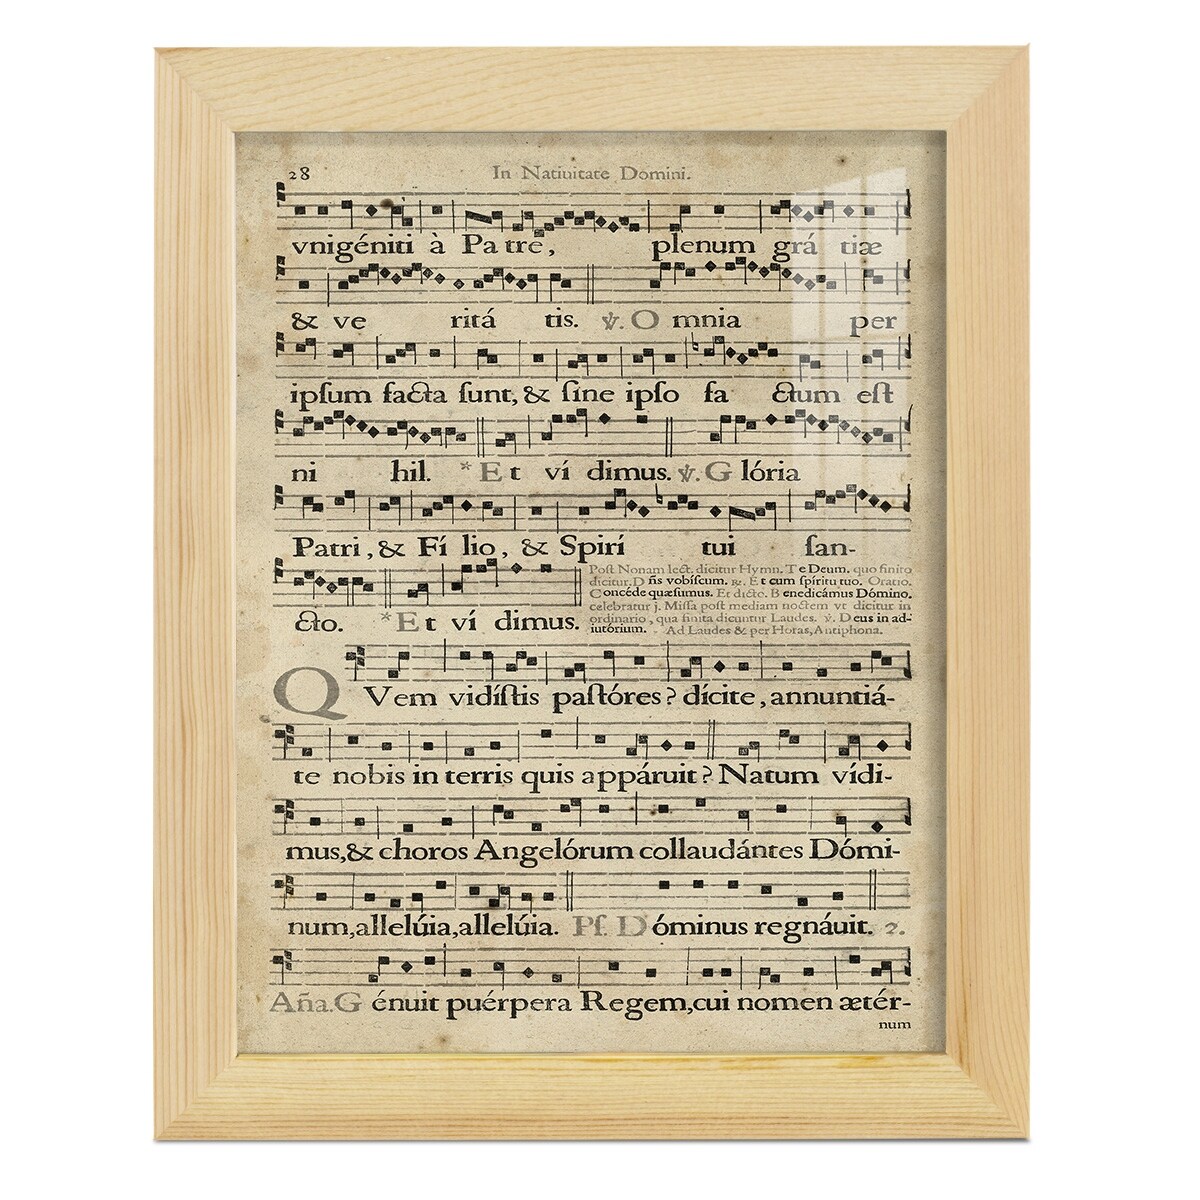 28 In Natiuitate Domini.
vnigéniti à Pa tre, plenum grá tiæ
& ve ritá tis. ℣. O mnia per
ipſum facta ſunt, & ſine ipſo fa ctum eſt
ni hil. *Et ví dimus. ℣. G lória
Patri, & Fí lio, & Spirí tui ſan-
Poſt Nonam lect. dicitur Hymn. Te Deum. quo finito
dicitur. D ñs vobiſcum. ℟. Et cum ſpíritu tuo. Oratio.
Concéde quæſumus. Et dicto. B enedicámus Dómino.
celebratur j. Miſſa poſt mediam noctem vt dicitur in
ordinario, qua finita dicuntur Laudes. ℣. Deus in ad-
iutórium. Ad Laudes & per Horas, Antiphona.
cto. *Et ví dimus.
QVem vidíſtis paſtóres? dícite, annuntiá-
te nobis in terris quis appáruit? Natum vídi-
mus, & choros Angelórum collaudántes Dómi-
num, allelúia, allelúia. Pſ. Dóminus regnáuit. 2.
Aña. G énuit puérpera Regem, cui nomen ætér-
num